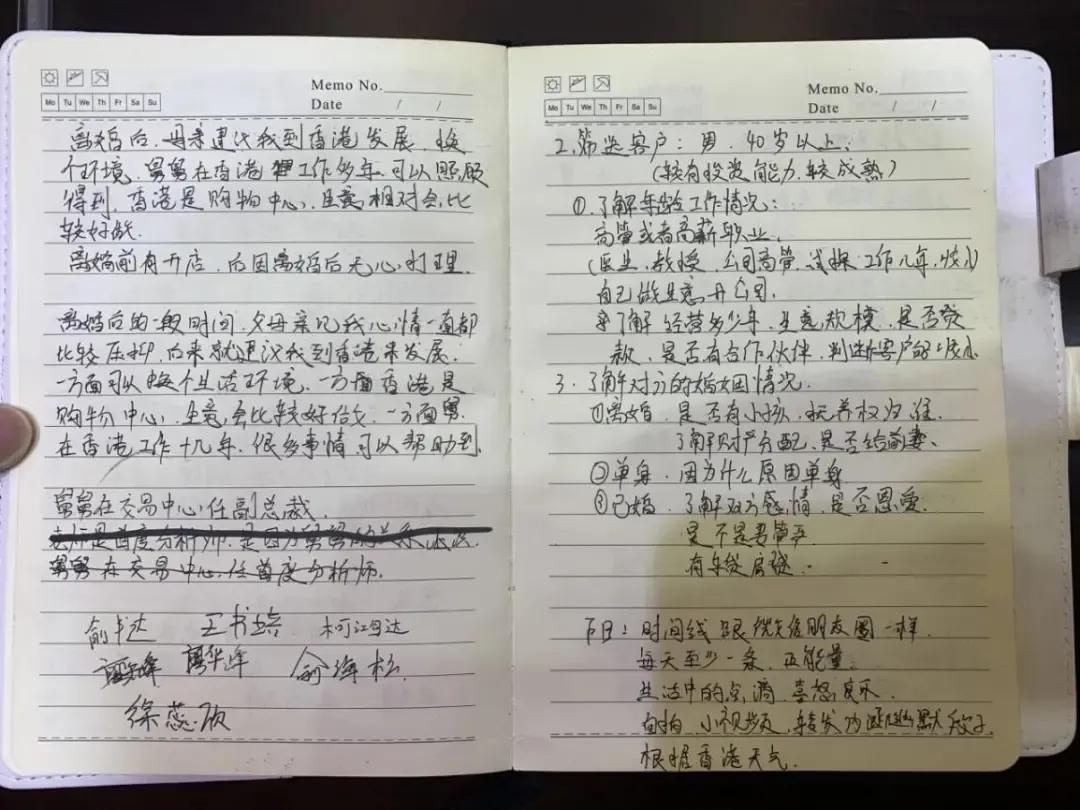 Memo No.
Mo Tu We Th Fr Sa Su
Date / /
离婚后，母亲建议我到香港发展，换
个环境，舅舅在香港工作多年，可以照顾
得到，香港是购物中心，生意相对会比
较好做．
离婚前有开店，后因离婚后无心打理．
离婚后的一段时间，父母亲见我心情一直都
比较压抑，后来就建议我到香港来发展．
一方面可以换个生活环境，一方面香港是
购物中心，生意会比较好做，一方面舅
在香港工作十几年，很多事情可以帮助到．
舅舅在交易中心任副总裁．
是首度分析师，是因为舅舅的关系
舅舅在交易中心任首度分析师．
俞书达 王书培 柯江
华峰 俞海
徐蕊
Memo No.
Mo Tu We Th Fr Sa Su
Date / /
2．筛选客户：男，40岁以上，
（较有投资能力，较成熟）
①．了解年龄工作情况：
高管或者高薪职业，
（医生，教授，公司高管，工作几年，
自己做生意，开公司．
了解经营多少年，生意规模，是否贷
款，是否有合作伙伴，判断客户的
3．了解对方的婚姻情况．
①离婚，是否有小孩，抚养权归谁．
了解财产分配，是否给前妻、
②单身，因为什么原因单身
③已婚，了解双方感情，是否恩爱．
是不是
有
下日：时间线 跟 朋友圈一样．
每天至少一条，正能量．
生活中的点滴，喜怒哀乐．
自拍，小视频，转发 幽默段子
根据香港天气．